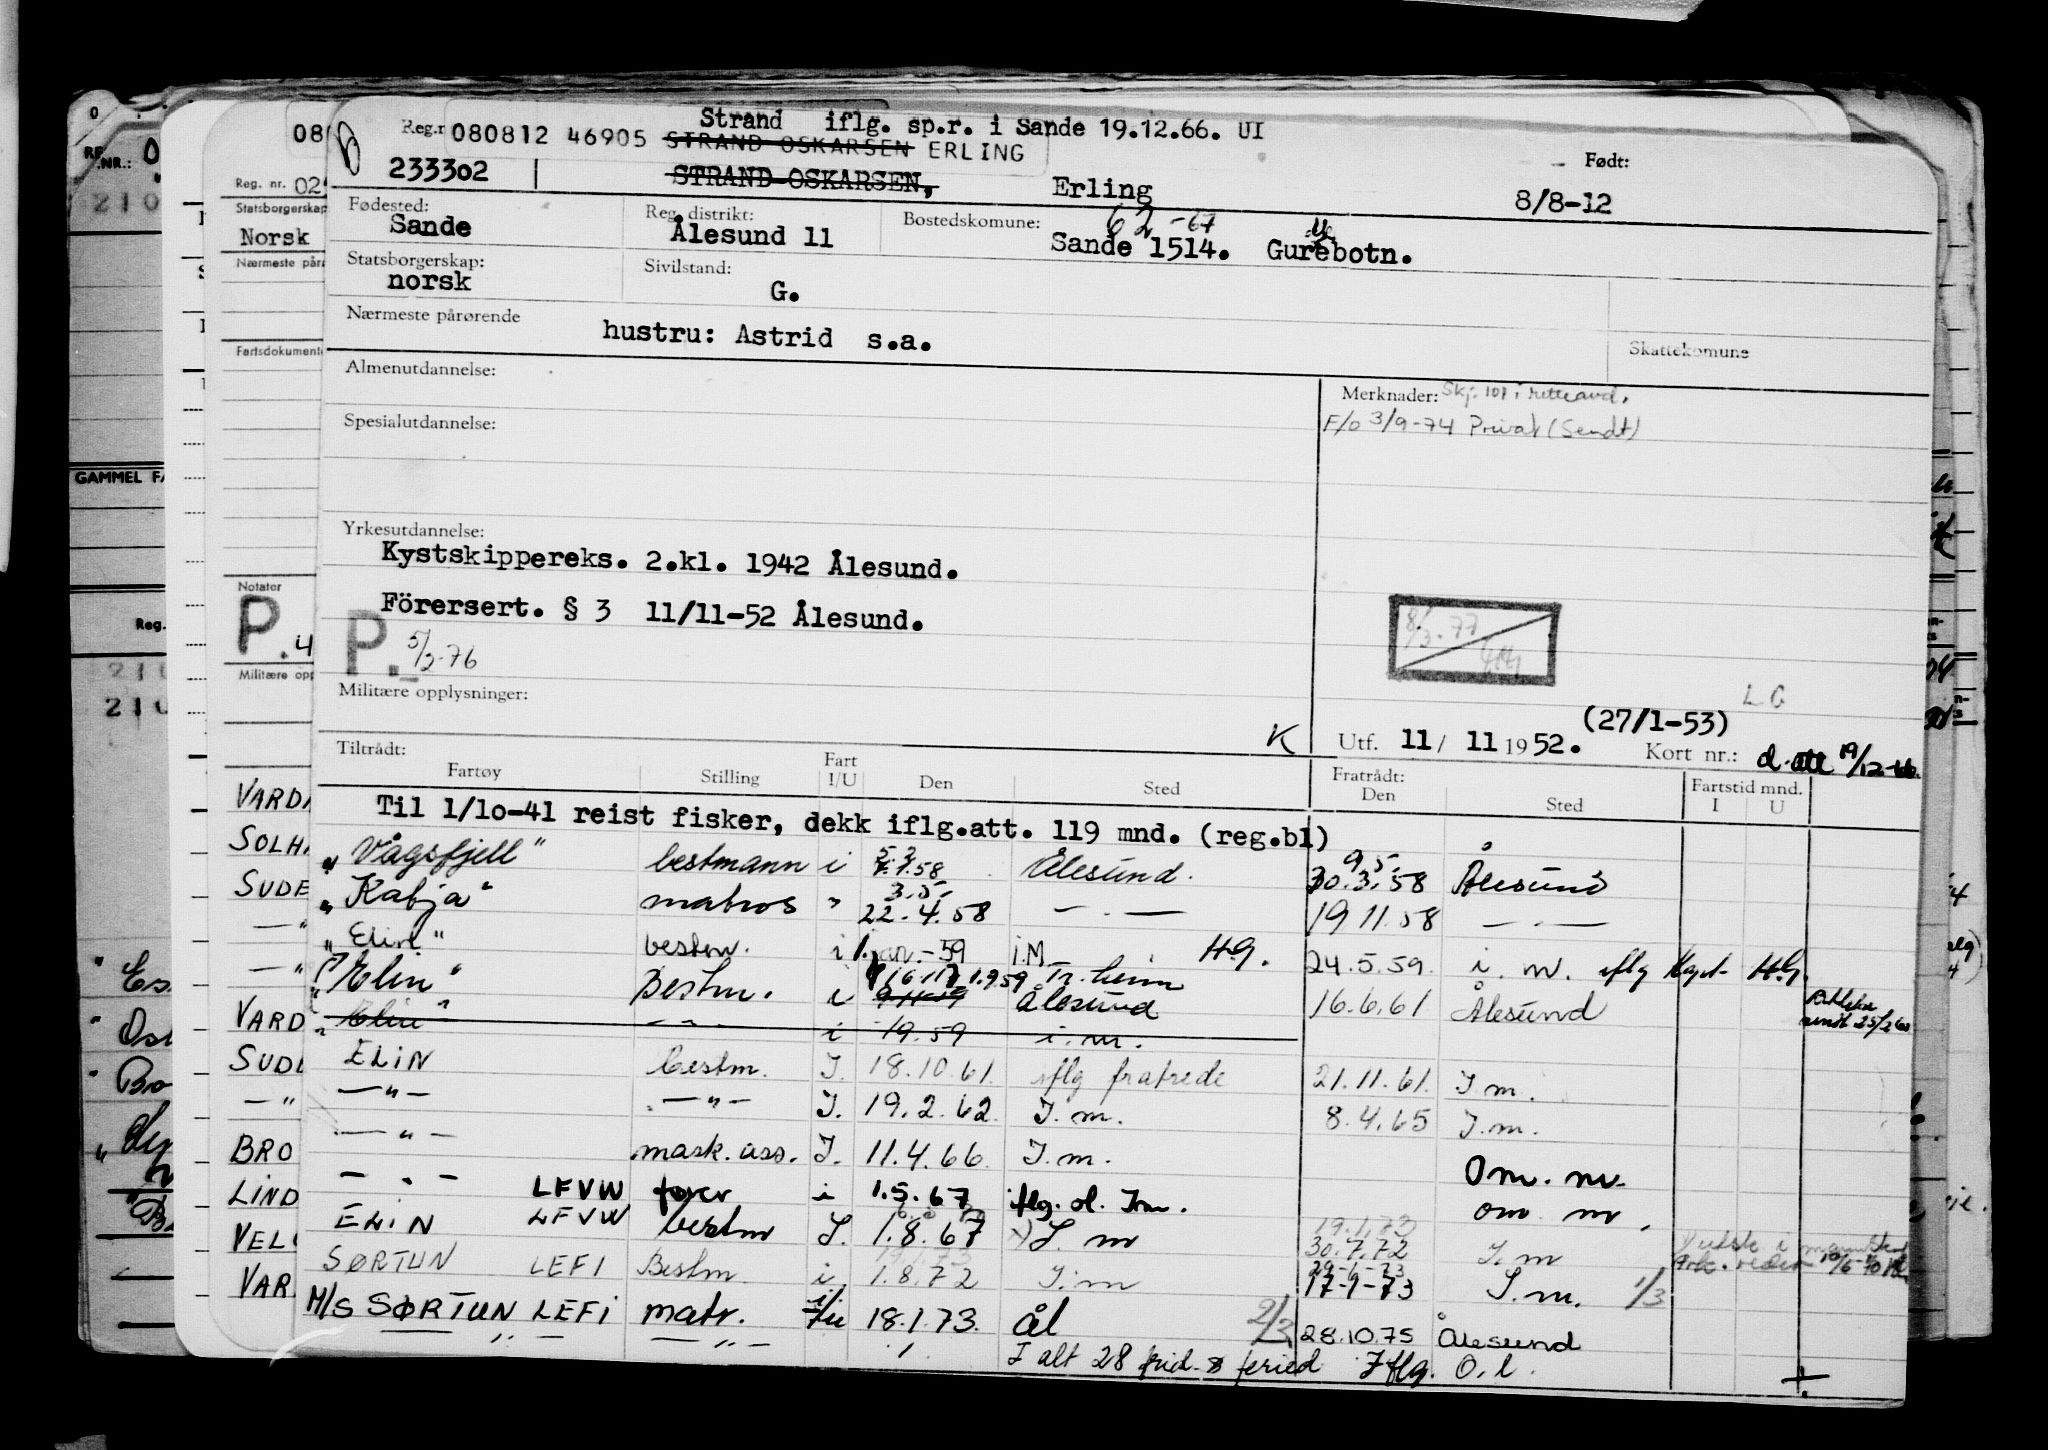 Strand iflg. sp.r. i Sande 19.12.66. UI
080812 46905 STRAND OSKARSEN ERLING
233302 STRAND-OSKARSEN, Erling
Født: 8/8-12
Fødested: Sande
Reg. distrikt: Ålesund 11
Bostedskomune: Sande 1514. Gurebotn.
62-67
Statsborgerskap: norsk
Sivilstand: G.
Nærmeste pårørende hustru: Astrid s.a.
Skattekomune
Almenutdannelse:
Merknader:
F/o 3/9-74 Privat (Sendt)
Spesialutdannelse:
Yrkesutdannelse:
Kystskippereks. 2.kl. 1942 Ålesund.
Förersert. § 3 11/11-52 Ålesund.
P. 5/2-76
8/3-77
Militære opplysninger:
L G
K
(27/1-53)
Utf. 11/ 11 1952.
Kort nr.: d. att 19/12-66
Tiltrådt:
Fartøy Stilling Fart I/U Den Sted
Fratrådt: Den Sted
Fartstid mnd. I U
Til 1/10-41 reist fisker, dekk iflg.att. 119 mnd. (reg.bl)
"Vågsfjell" bestmann i 58 Ålesund. 30.3.58 Ålesund
"Kabja" matros " 22.4.58 — " — 19 11.58 — " —
"Elin" bestm. i 1.jan.-59 i.M H.G. 24.5.59. i. m. iflg H.G.
"Elin" Bestm. i 1.9.59 Tr.heim Ålesund 16.6.61 Ålesund
"Elin" — " — i 19.59 i. m.
ELIN bestm. I. 18.10.61. iflg fratrede 21.11.61. I.m.
— " — — " — I. 19.2.62. I.m. 8.4.65 I.m.
— " — mask.ass. I. 11.4.66. I.m. Om. m.
— " — LFVW fører i 1.5.67 iflg. ol. I.m. om m.
ELIN LFVW bestm I. 1.8.67 I.m 19.1.73 30.7.72 I.m
SØRTUN LEFI Bestm. i 1.8.72 I.m 29-1-73 17-1-73 I.m. 1/3
M/S SØRTUN LEFI matr. i/u 18.1.73. Ål 2/3 28.10.75 Ålesund
— " — — " — I alt 28 Iflg. O.l.
Reg. nr.
Statsborgerskap
Norsk
Nærmeste pår
Fartsdokumente
Notater
P.
Militære opp
GAMMEL FA
Reg.
210
210
VARD
SOLH
SUDE
VARD
SUD
BRO
LIND
VEL
VAR